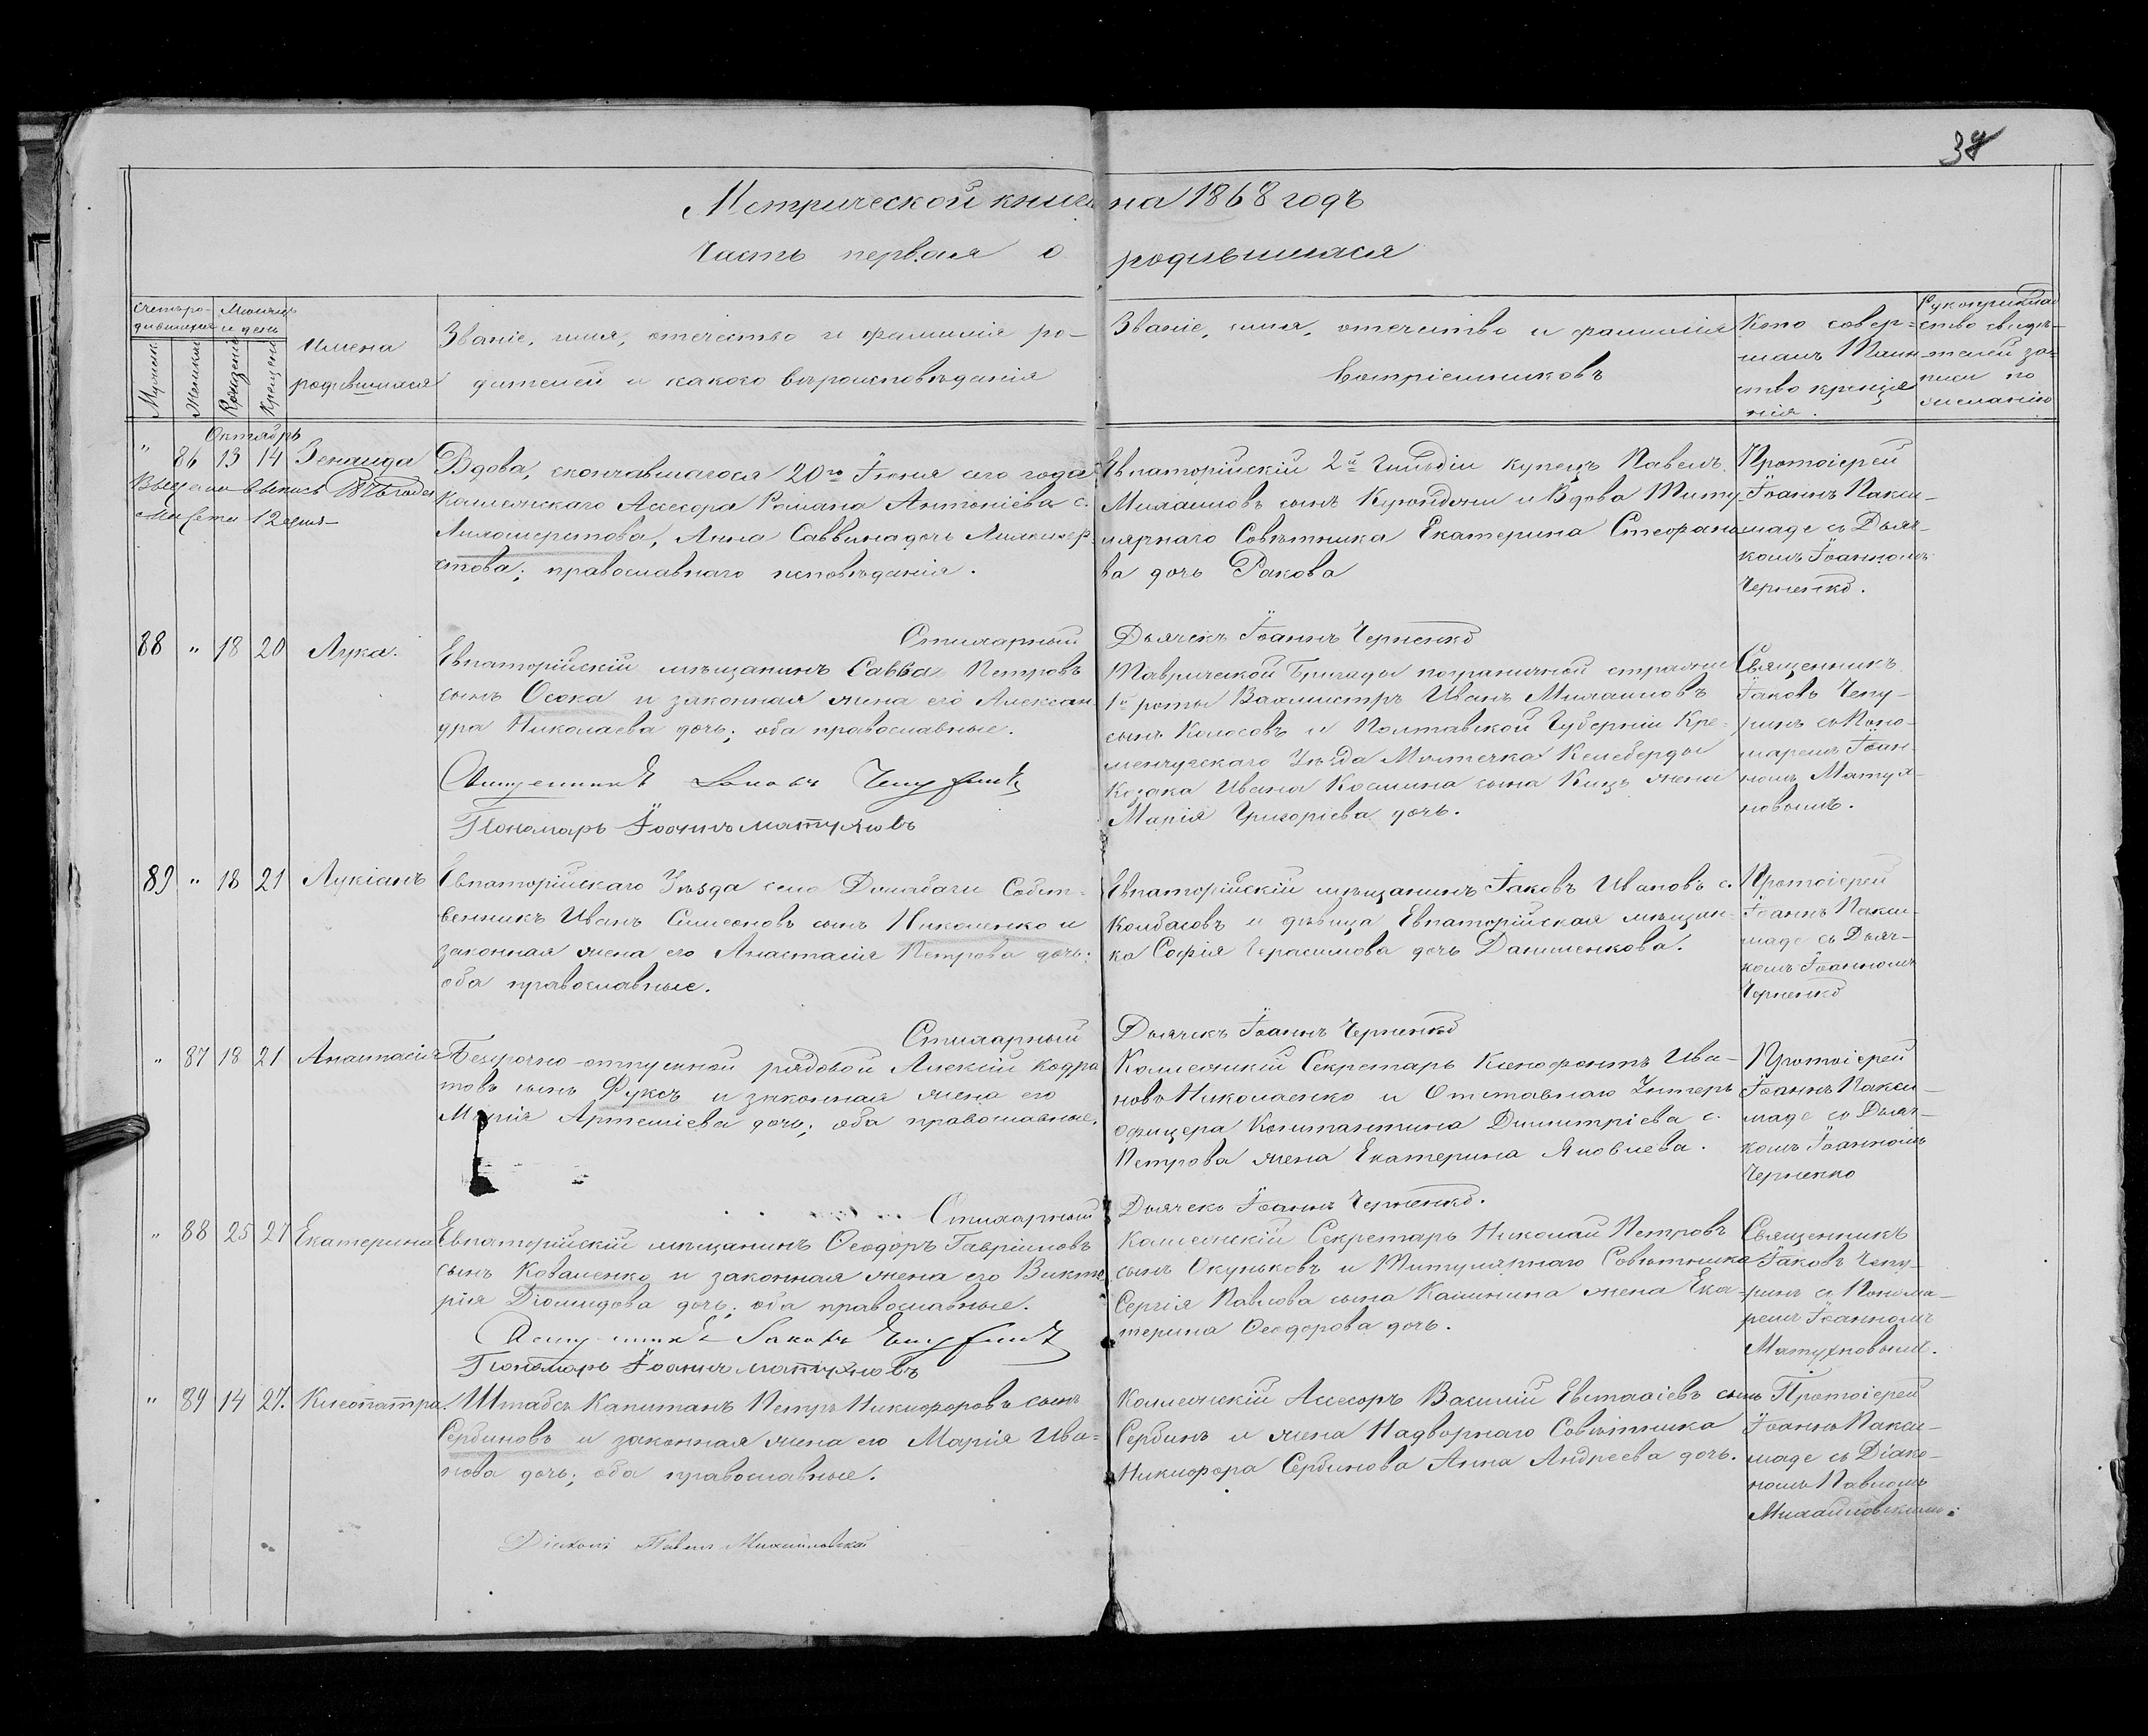 37
Метрической книги на 1868 годъ
Часть первая о родившихся
Счетъ ро-
дившихся
Мужск.
Женски
Мѣсяцъ
и день
Рожденiя
Крещенi
Имена
родившихся
Званiе, имя, отечество и фамилiя ро-
дителей и какого вѣроисповѣданiя
Званiе, имя, отечество и фамилiя
Воспрiемниковъ
Кто совер-
шалъ Таин
ство креще
нiя.
Рукоприклад
ство свидѣ-
телей за-
писи по
желанiю
Октябрь
" 86 13 14 Зенаида
Выдана выпись 1876 года
Марта 12 дня
Вдова, скончавшагося 20го Iюня сего года
Коллежскаго Ассесора Романа Антонiева с.
Анна Саввина дочь
ства; православнаго исповѣданiя.
Евпаторiйскiй 2й Гильдiи купецъ Павелъ
Михаиловъ сынъ и Вдова Титу
лярнаго Совѣтника Екатерина Стефано
ва дочь Ракова
Протоiерей
Iоаннъ Пакси-
маде съ Дьяч-
комъ Iоанномъ
Черненко.
Стихарный Дьячекъ Iоаннъ Черненко
88 " 18 20 Лука.
Евпаторiйскiй мѣщанинъ Савва Петровъ
сынъ Осока и законная жена его Алексан
дра Николаева дочь; оба православные.
Священникъ Iаковъ Чепуринъ
Пономарь Iоаннъ Матуяновъ
Таврической Бригады пограничной стражи
1й роты Вахмистръ Иванъ Михаиловъ
сынъ Колосовъ и Полтавской Губернiи Кре-
менчугскаго Уѣзда Мѣстечка Келеберды
Козака Ивана Космина сына Кицъ жена
Марiя Григорiева дочь.
Священникъ
Iаковъ Чепу-
ринъ съ Поно-
маремъ Iоан-
номъ Матуя-
новымъ.
89 " 18 21 Лукiанъ
Евпаторiйскаго Уѣзда села Собст-
венникъ Иванъ Симеоновъ сынъ Николенко и
законная жена его Анастасiя Петрова дочь;
оба православные.
Евпаторiйскiй мѣщанинъ Iаковъ Ивановъ с.
Колбасовъ и дѣвица Евпаторiйская мѣщан-
ка Софiя Герасимова дочь Даниленкова.
Протоiерей
Iоаннъ Пакси-
маде съ Дьяч-
комъ Iоанномъ
Черненко
Стихарный Дьячекъ Iоаннъ Черненко
" 87 18 21 Анастасiя
Безсрочно-отпускной рядовой Алексiй Кодра
товъ сынъ Фуксъ и законная жена его
Марiя Артемiева дочь; оба православные.
Коллежскiй Секретарь Ксенофонтъ Ива-
новъ Николаенко и Отставнаго Унтеръ
офицера Константина Димитрiева с.
Петрова жена Екатерина Яковлева.
Протоiерей
Iоаннъ Пакси-
маде съ Дьяч-
комъ Iоанномъ
Черненко
Стихарный Дьячекъ Iоаннъ Черненко.
" 88 25 27 Екатерина
Евпаторiйскiй мѣщанинъ Ѳеодоръ Гаврiиловъ
сынъ Коваленко и законная жена его Викто
рiя Дiомидова дочь; оба православные.
Священникъ Iаковъ Чепуринъ
Пономарь Iоаннъ Матуяновъ
Коллежскiй Секретарь Николай Петровъ
сынъ Окуньковъ и Титулярнаго Совѣтника
Сергiя Павлова сына Калинина жена Ека-
терина Ѳеодорова дочь.
Священникъ
Iаковъ Чепу-
ринъ съ Понома-
ремъ Iоанномъ
Матуяновымъ.
" 89 14 27. Клеопатра.
Штабсъ Капитанъ Петръ Никифоровъ сынъ
Сербиновъ и законная жена его Марiя Ива-
нова дочь; оба православные.
Дiаконъ Павелъ Михайловскiй
Коллежскiй Ассесоръ Василiй Евстафiевъ сынъ
Сербинъ и жена Надворнаго Совѣтника
Никифора Сербинова Анна Андреева дочь.
Протоiерей
Iоаннъ Пакси-
маде съ Дiако-
номъ Павломъ
Михайловскимъ.